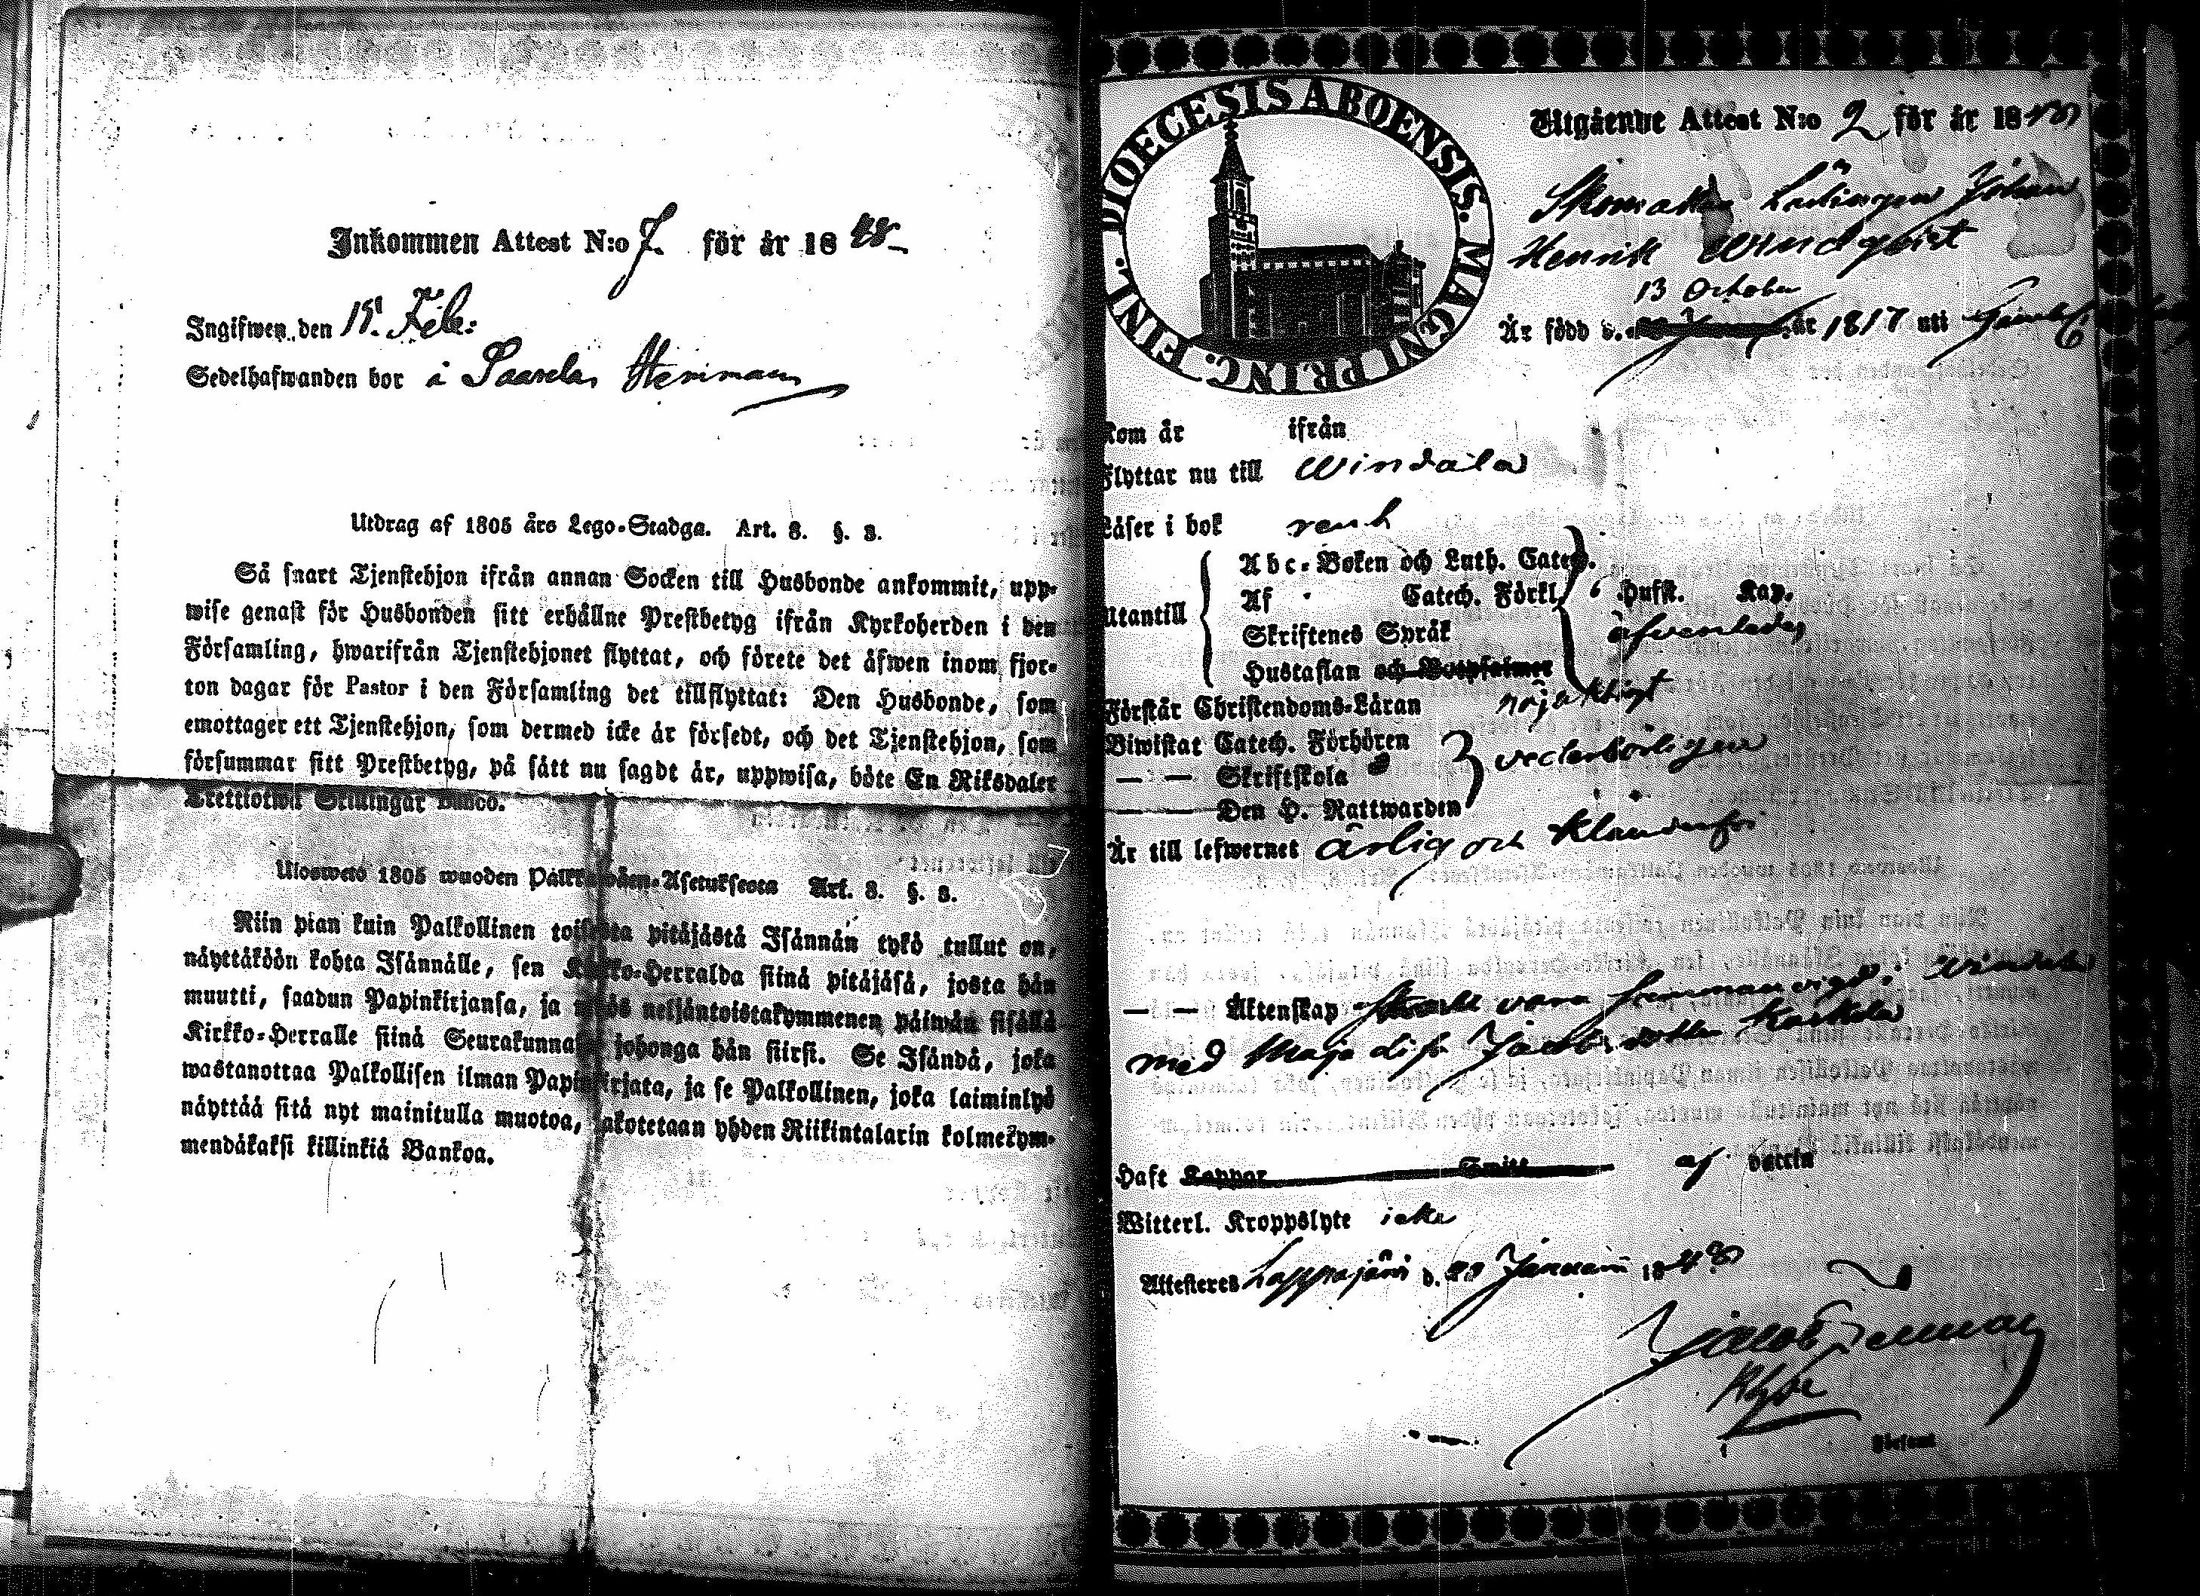 Inkommen Attest N:o 7. för år 1848
Ingifwen den 15. Feb:
Sedelhafwanden bor å
Utdrag af 1805 års Lego-Stadga. Art. 8. §. 3.
Så snart Tjenstehjon ifrån annan Socken till Husbonde ankommit, upp-
wise genast för Husbonden sitt erhållne Prestbetyg ifrån Kyrkoherden i den
Församling, hwarifrån Tjenstehjonet flyttat, och förete det äfwen inom fjor-
ton dagar för Pastor i den Församling det tillflyttat: Den Husbonde, som
emottager ett Tjenstehjon, som dermed icke är försedt, och det Tjenstehjon, som
försummar sitt Prestbetyg, på sätt nu sagdt är, uppwisa, böte En Riksdaler
Trettiotwå Skillingar Banco.
Uloswetö 1805 wuoden Palkkawäen-Asetuksesta Art. 8. §. 3.
Niin pian kuin Palkollinen toisesta pitäjästä Isännän tykö tullut on,
näyttäköön kohta Isännälle, sen Kirkko-Herralda siinä pitäjäsä, josta hän
muutti, saadun Papinkirjansa, ja myös neljäntoistakymmenen päiwän sisällä
Kirkko-Herralle siinä Seurakunnasa johonga hän siirsi. Se Isändä, joka
wastanottaa Palkollisen ilman Papinkirjata, ja se Palkollinen, joka laiminlyö
näyttää sitä nyt mainitulla muotoa, sakotetaan yhden Riikintalarin kolmekym-
mendäkaksi killinkiä Bankoa.
DIOECESIS ABOENSIS. MAGNI PRINC. FINL.
Utgående Attest N:o 2 för år 1848
Skomakare Lärlingen Johan
Henrik Windqvist
13 October
Är född d. år 1817 uti
Kom år ifrån
Flyttar nu till Windala
Läser i bok rent
Utantill
Abc-Boken och Luth. Catech.
Af Catech. Förkl. 6 Hufst. Kap.
Skriftenes Språk äfvenledes
Hustaflan och Botpsalmer
Förstår Christendoms-Läran nöjaktigt
Biwistat Catech. Förhören
— — Skriftskola vederbörligen
— — Den H. Nattwarden
Är till lefwernet ärlig och klanderfri
— — Äktenskap vara sammanvigd i Windala
med Maja Lisa Jacobsdotter Karkela
Haft Koppor Smitt af vaccin
Witterl. Kroppslyte icke
Attesteres Lappajärvi d. Januarii 1848
Jacob